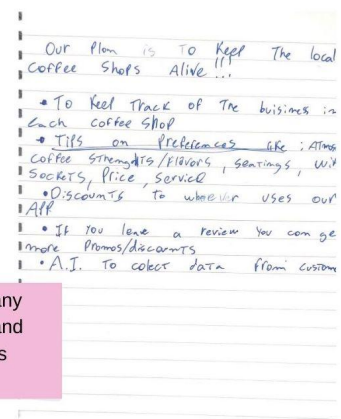 Our Plan is To Keep The local
Coffee Shops Alive !!!
• To Keep Track of The buisines in
each coffee shop
• Tips on Preferences like : Atmo
coffee strenghts/Flavors, seatings, Wi
Sockets, Price, service
• Discounts to whoever uses our
APP
• If you leave a review you can ge
more Promos/discounts
• A.I. To colect data from custom
any
and
s